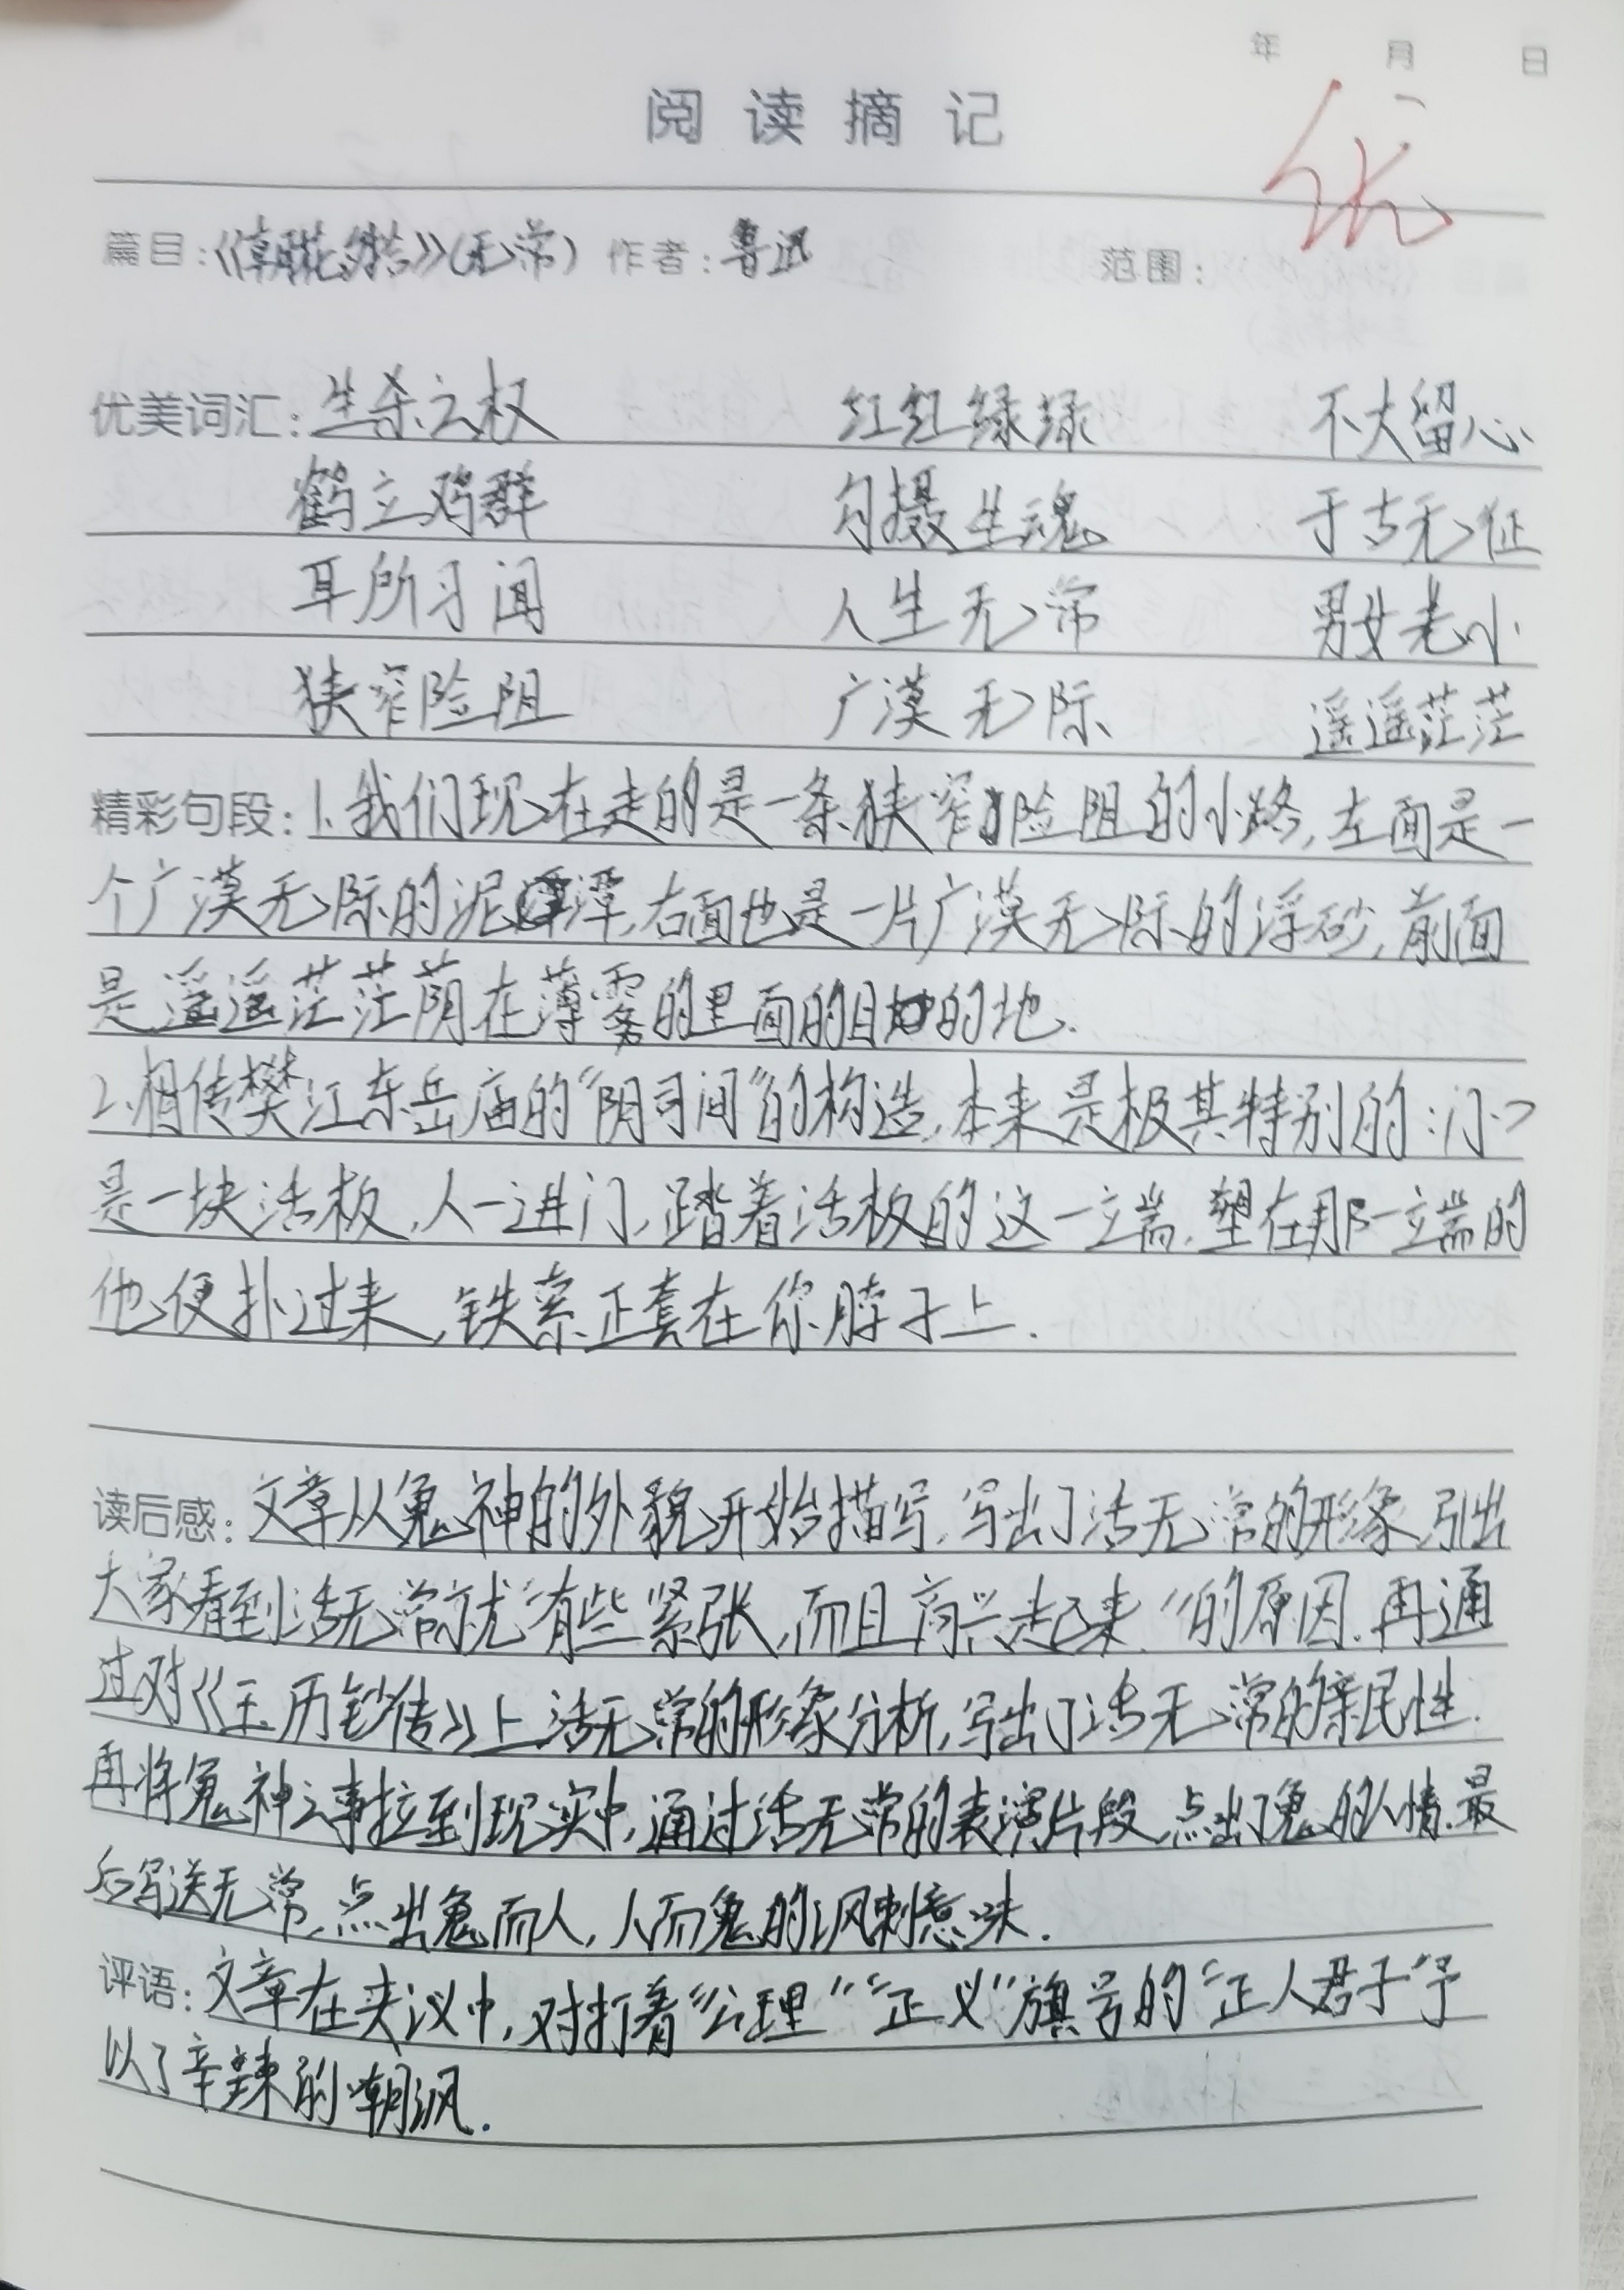 年 月 日
优
阅读摘记
篇目:《朝花夕拾》(无常) 作者:鲁迅 范围:
优美词汇:生杀之权 红红绿绿 不大留心
鹤立鸡群 勾摄生魂 于古无征
耳所习闻 人生无常 男女老小
狭窄险阻 广漠无际 遥遥茫茫
精彩句段:1.我们现在走的是一条狭窄险阻的小路,左面是一
个广漠无际的泥潭,右面也是一片广漠无际的浮砂,前面
是遥遥茫茫荫在薄雾的里面的目的地.
2.相传樊江东岳庙的“阴司间”的构造,本来是极其特别的:门口
是一块活板,人一进门,踏着活板的这一端,塑在那一端的
他便扑过来,铁索正套在你脖子上.
读后感:文章从鬼神的外貌开始描写,写出了活无常的形象,引出
大家看到活无常就“有些紧张,而且高兴起来.”的原因.再通
过对《玉历钞传》上活无常的形象分析,写出了活无常的亲民性.
再将鬼神之事拉到现实中,通过活无常的表演片段,点出了鬼的人情.最
后写送无常,点出鬼而人,人而鬼的讽刺意味.
评语:文章在夹议中,对打着“公理”“正义”旗号的“正人君子”予
以了辛辣的嘲讽.